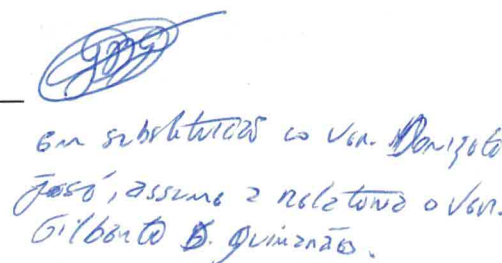 em substituição ao Ver. Donizete
José, assume a relatoria o Ver.
Gilberto D. Guimarães.